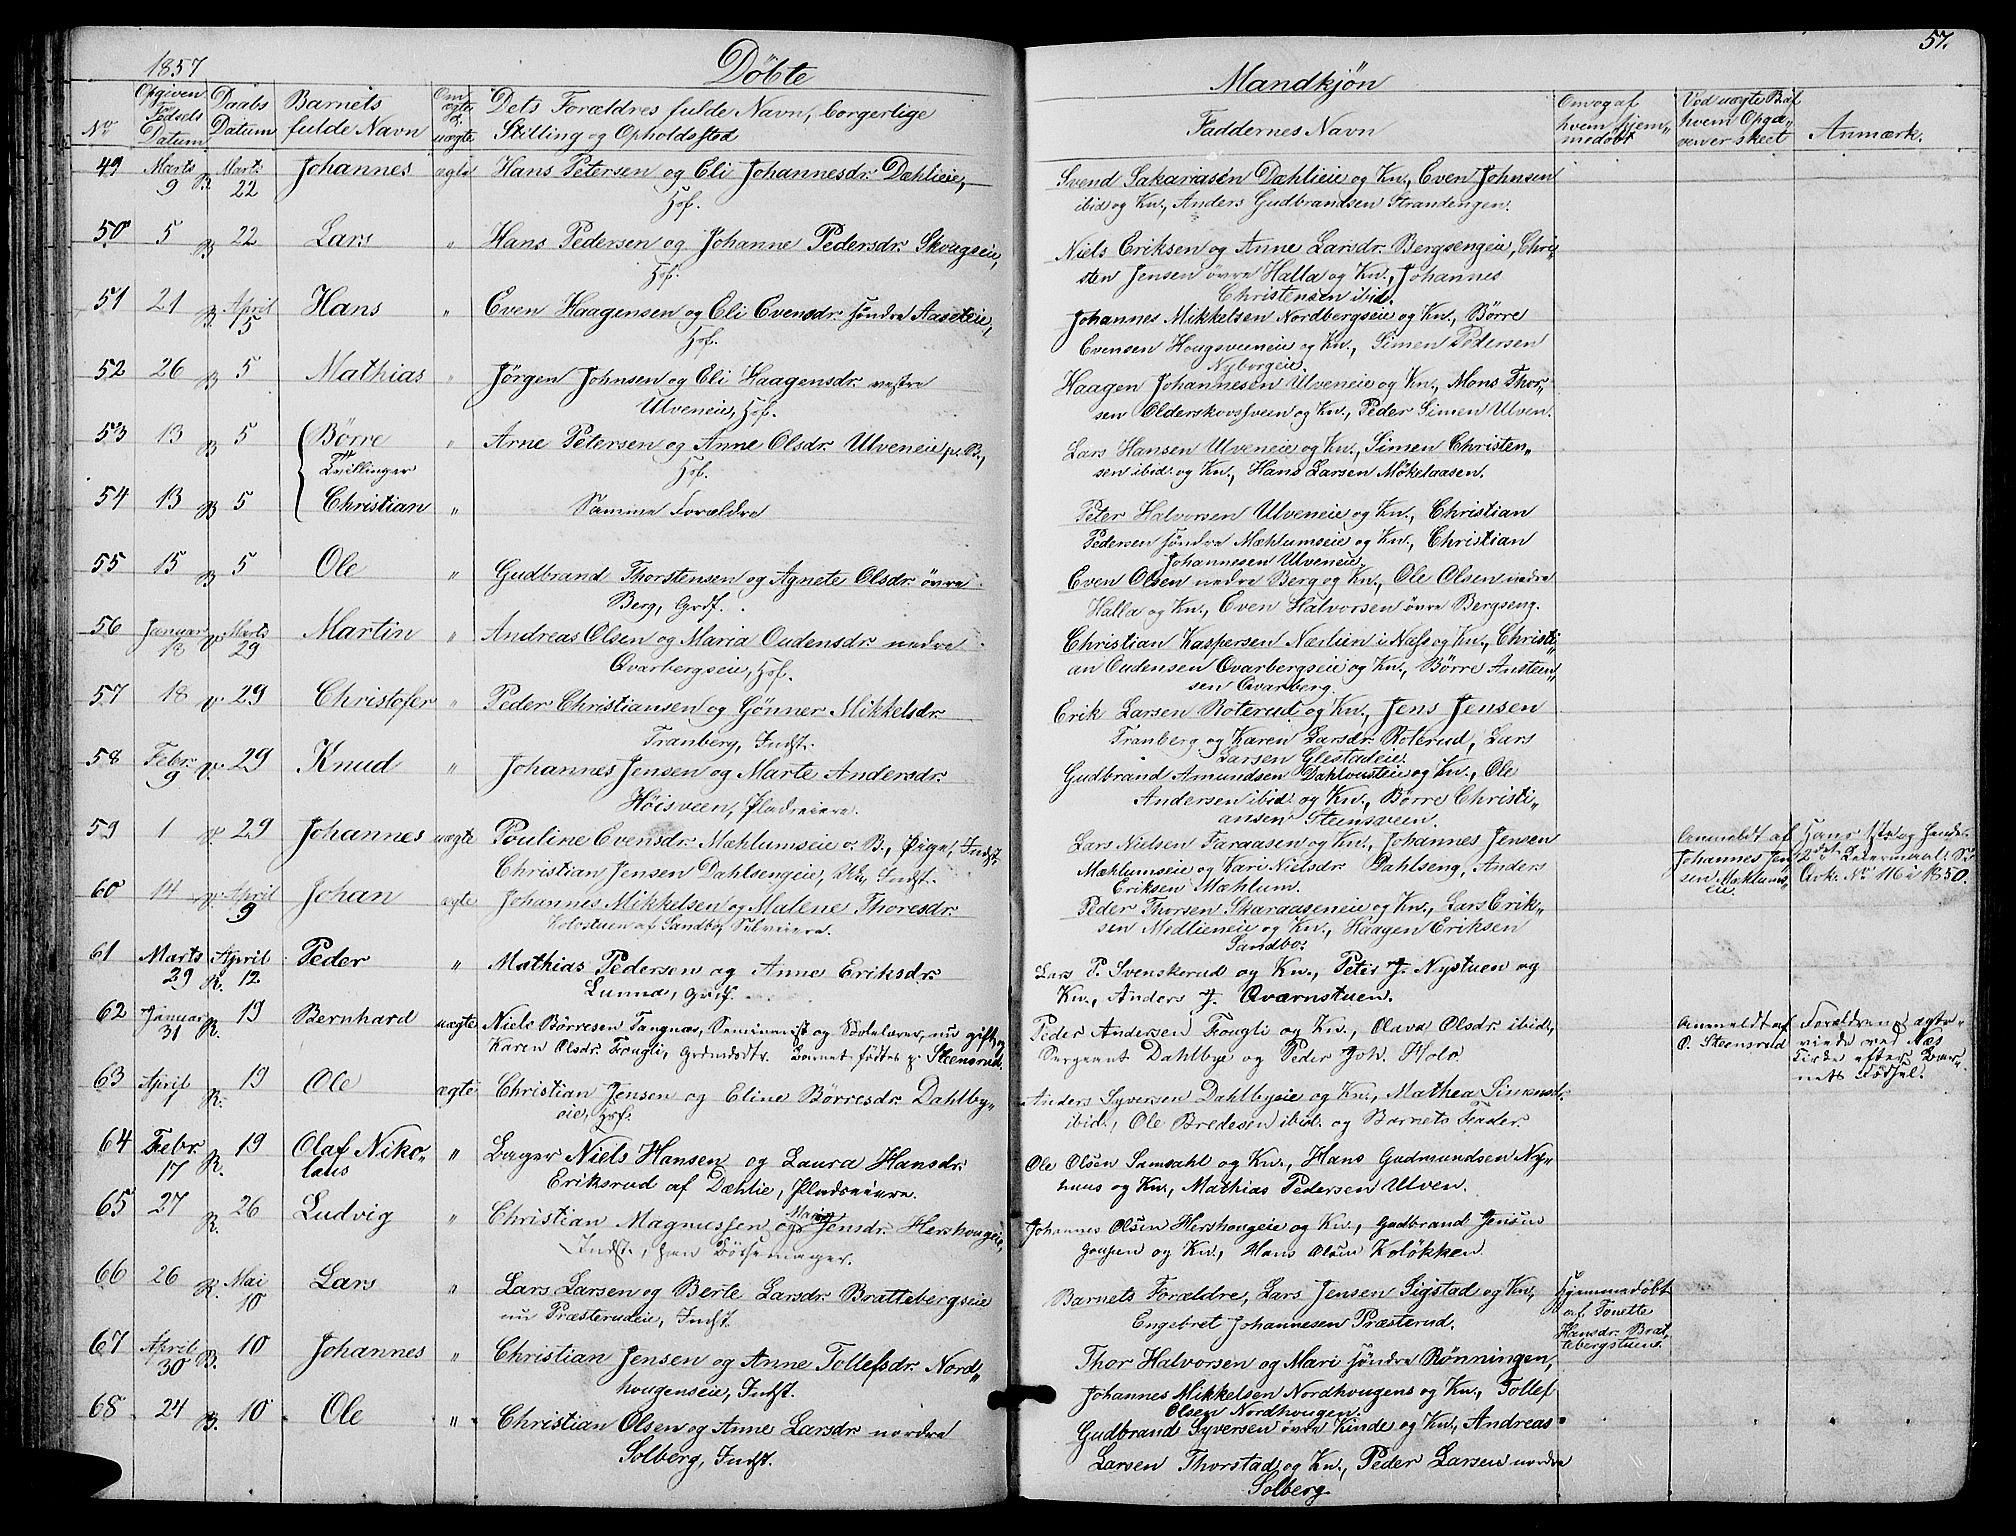 1857
Döbte
Mandkjön
57.
No
Opgiven Födsels Datum
Daabs Datum
Barnets fulde Navn
Om ægte el. uægte
Dets Forældres fulde Navn, borgerlige Stilling og Opholdssted
Faddernes Navn
Om og af hvem hjemmedöbt
Ved uægte B. af hvem Opgaven er skeet
Anmærk.
49 Marts 9 B. Marts 22 Johannes ægte Hans Petersen og Eli Johannesdr. Dæhlieie,
Hsf.
Svend Sakariasen Dæhlieie og Kn., Even Johnsen
ibid og Kn., Anders Gudbrandsen Strandengen.
50 5 B 22 Lars " Hans Pedersen og Johanne Pedersdr. Skvagseie,
Hsf.
Niels Eriksen og Anne Larsdr. Bergsengeie, Chri„
sten Jensen övre Halla og Kn., Johannes
Christensen ibid.
51 21 B. April 5 Hans " Even Haagensen og Eli Evensdr. söndre Aaseteie,
Hsf.
Johannes Mikkelsen Nordbergseie og Kn., Börre
Evensen Hougsveeneie og Kn., Simen Pedersen
Nyborgeie.
52 26 B 5 Mathias " Jörgen Johnsen og Eli Haagensdr. vestre
Ulveneie, Hsf.
Haagen Johannesen Ulveneie og Kn., Mons Thor„
sen Olderskovssveen og Kn., Peder Simen Ulven.
53 13 B 5 Börre " Arne Petersen og Anne Olsdr. Ulveneie p. B.,
Tvillinger
Hsf.
Lars Hansen Ulveneie og Kn., Simen Christen„
sen ibid. og Kn., Hans Larsen Mökelaasen.
54 13 B 5 Christian " Samme Forældre
Peter Halvorsen Ulveneie og Kn., Christian
Pedersen söndre Mæhlumseie og Kn., Christian
Johannesen Ulveneie,
55 15 B 5 Ole " Gudbrand Thorstensen og Agnete Olsdr. övre
Berg, Grdf.
Even Olsen nedre Berg og Kn., Ole Olsen nedre
Halla og Kn., Even Halvorsen övre Bergseng.
56 Januar 18 Marts 29 Martin " Andreas Olsen og Maria Oudensdr. nedre
Qvarbergseie, Hsf.
Christian Kaspersen Nærlien i Næs og Kn., Christi„
an Oudensen Qvarbergseie og Kn., Börre Ansteen„
sen Qvarberg.
57 18 29 Christofer " Peder Christiansen og Gönner Mikkelsdr.
Tranberg, Indst.
Erik Larsen Roterud og Kn., Jens Jensen
Tranberg og Karen Larsdr. Roterud, Lars
Larsen Glestadeie.
58 Febr. 9 29 Knud " Johannes Jensen og Marte Andersdr.
Höisveen, Pladseiere.
Gudbrand Amundsen Dahlousteie og Kn., Ole
Andersen ibid og Kn., Börre Christi„
ansen Steensveen.
59 1 29 Johannes uægte Pouline Evensdr. Mæhlumseie o. B., Pige, Indst.
Christian Jensen Dahlsengeie, Uk., Indst.
Lars Nielsen Faraasen og Kn., Johannes Jensen
Mæhlumseie og Kari Nielsdr. Dahlseng, Anders
Eriksen Mæhlum.
Anmeldt af
Johannes Jen
sen Mæhlums„
eie.
Hans 1ste og hendes
2det Leiermaal. Se
No. 116 i 1850.
60 14 April 9 Johan ægte Johannes Mikkelsen og Malene Thoresdr.
Kolostuen af Sandbo, Selveiere.
Peder Thorsen Skaraaseneie og Kn., Lars Erik„
sen Medlieneie og Kn., Haagen Eriksen
Sandbo.
61 Marts 29 R. April 12 Peder " Mathias Pedersen og Anne Eriksdr.
Lunna, Grdf.
Lars P. Svenskerud og Kn., Peter J. Nystuen og
Kn., Anders J. Qværnstuen.
62 Januar 31 R. 19 Bernhard uægte Niels Börresen Tangnæs, Seminarist og Skolelærer, nu gift m.
Karen Olsdr. Fougli, Grdmdsdtr. Barnet födtes p. Steensrud.
Peder Andersen Fougli og Kn., Olava Olsdr. ibid.,
Sergeant Dahlbye og Peder Joh. Holo
Anmeldt af
P. Steensrud
Forældrene ægte„
viede ved Næs
Kirke efter Bar„
nets Födsel.
63 April 1 R. 19 Ole ægte Christian Jensen og Eline Börresdr. Dahlby„
eie, Hsf.
Anders Syversen Dahlbyeie og Kn., Mathea Simensdr.
ibid., Ole Bredesen ibid. og Barnets Fader.
64 Febr. 17 R. 19 Olaf Niko„
laus
" Bager Niels Hansen og Laura Hansdr.
Eriksrud af Dæhlie, Pladseiere.
Ole Olsen Samsahl og Kn., Hans Gudmundsen Ny„
huus og Kn., Mathias Pedersen Ulven.
65 27 R. 26 Ludvig " Christian Magnussen og Marie Jensdr. Hershougeie,
Indst., han Bössemager.
Johannes Olsen Hershougeie og Kn., Gudbrand Jensen
Goupen og Kn., Hans Olsen Kolökken.
66 26 R. Mai 10 Lars " Lars Larsen og Berte Larsdr. Brattebergseie
nu Præsterudeie, Indst.
Barnets Forældre, Lars Jensen Sigstad og Kn.,
Engebret Johannesen Præsterud.
Hjemmedöbt
af Tonette
Hansdr. Brat„
tebergstuen.
67 April 30 B. 10 Johannes " Christian Jensen og Anne Tollefsdr. Nord„
hougenseie, Indst.
Thor Halvorsen og Mari söndre Rönningen,
Johannes Mikkelsen Nordhougens og Kn., Tollef
Olsen Nordhougen.
68 24 B. 10 Ole " Christian Olsen og Anne Larsdr. nordre
Solberg, Indst.
Gudbrand Syversen övre Kinde og Kn., Andreas
Larsen Thorstad og Kn., Peder Larsen nordre
Solberg.